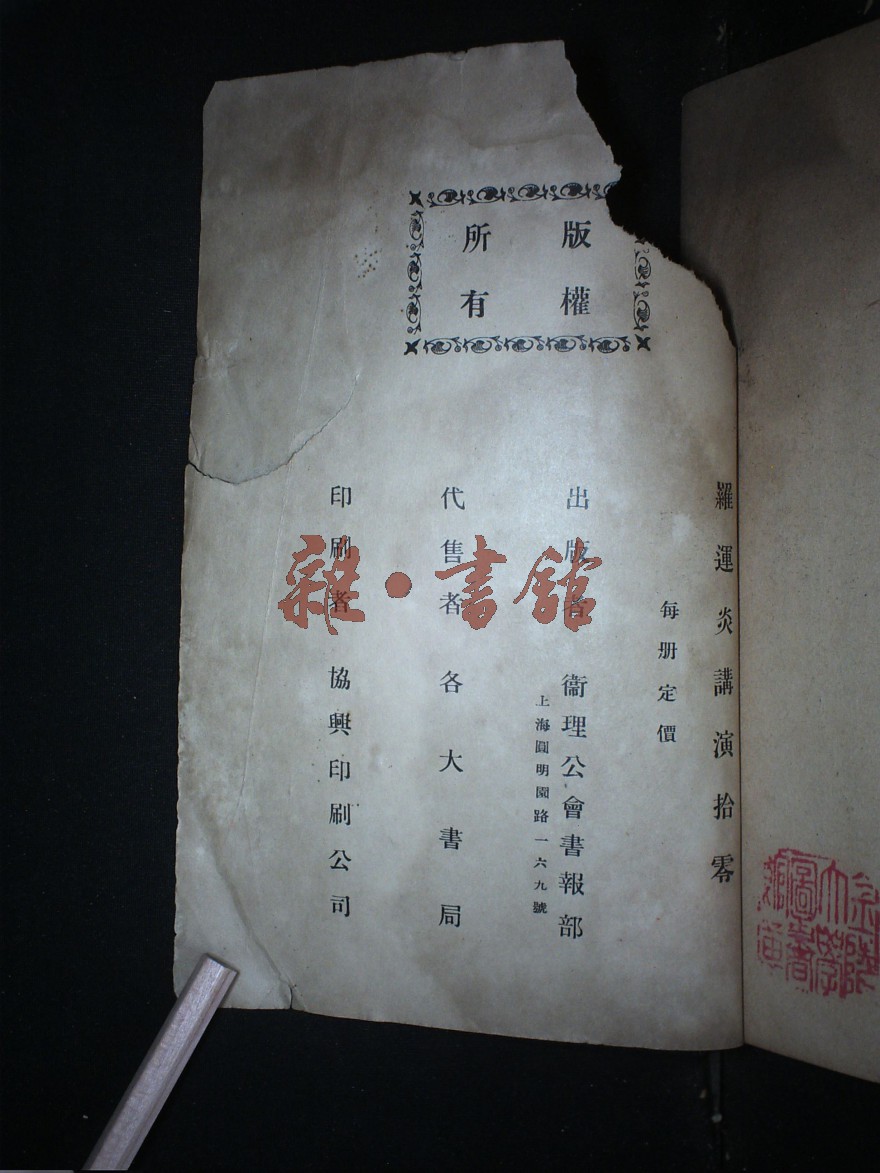 金陵
大學
圖書
館藏
羅運炎講演拾零
每册定價
版權
所有
出版者 衞理公會書報部
上海圓明園路一六九號
代售者 各大書局
印刷者 協興印刷公司
雜·書館